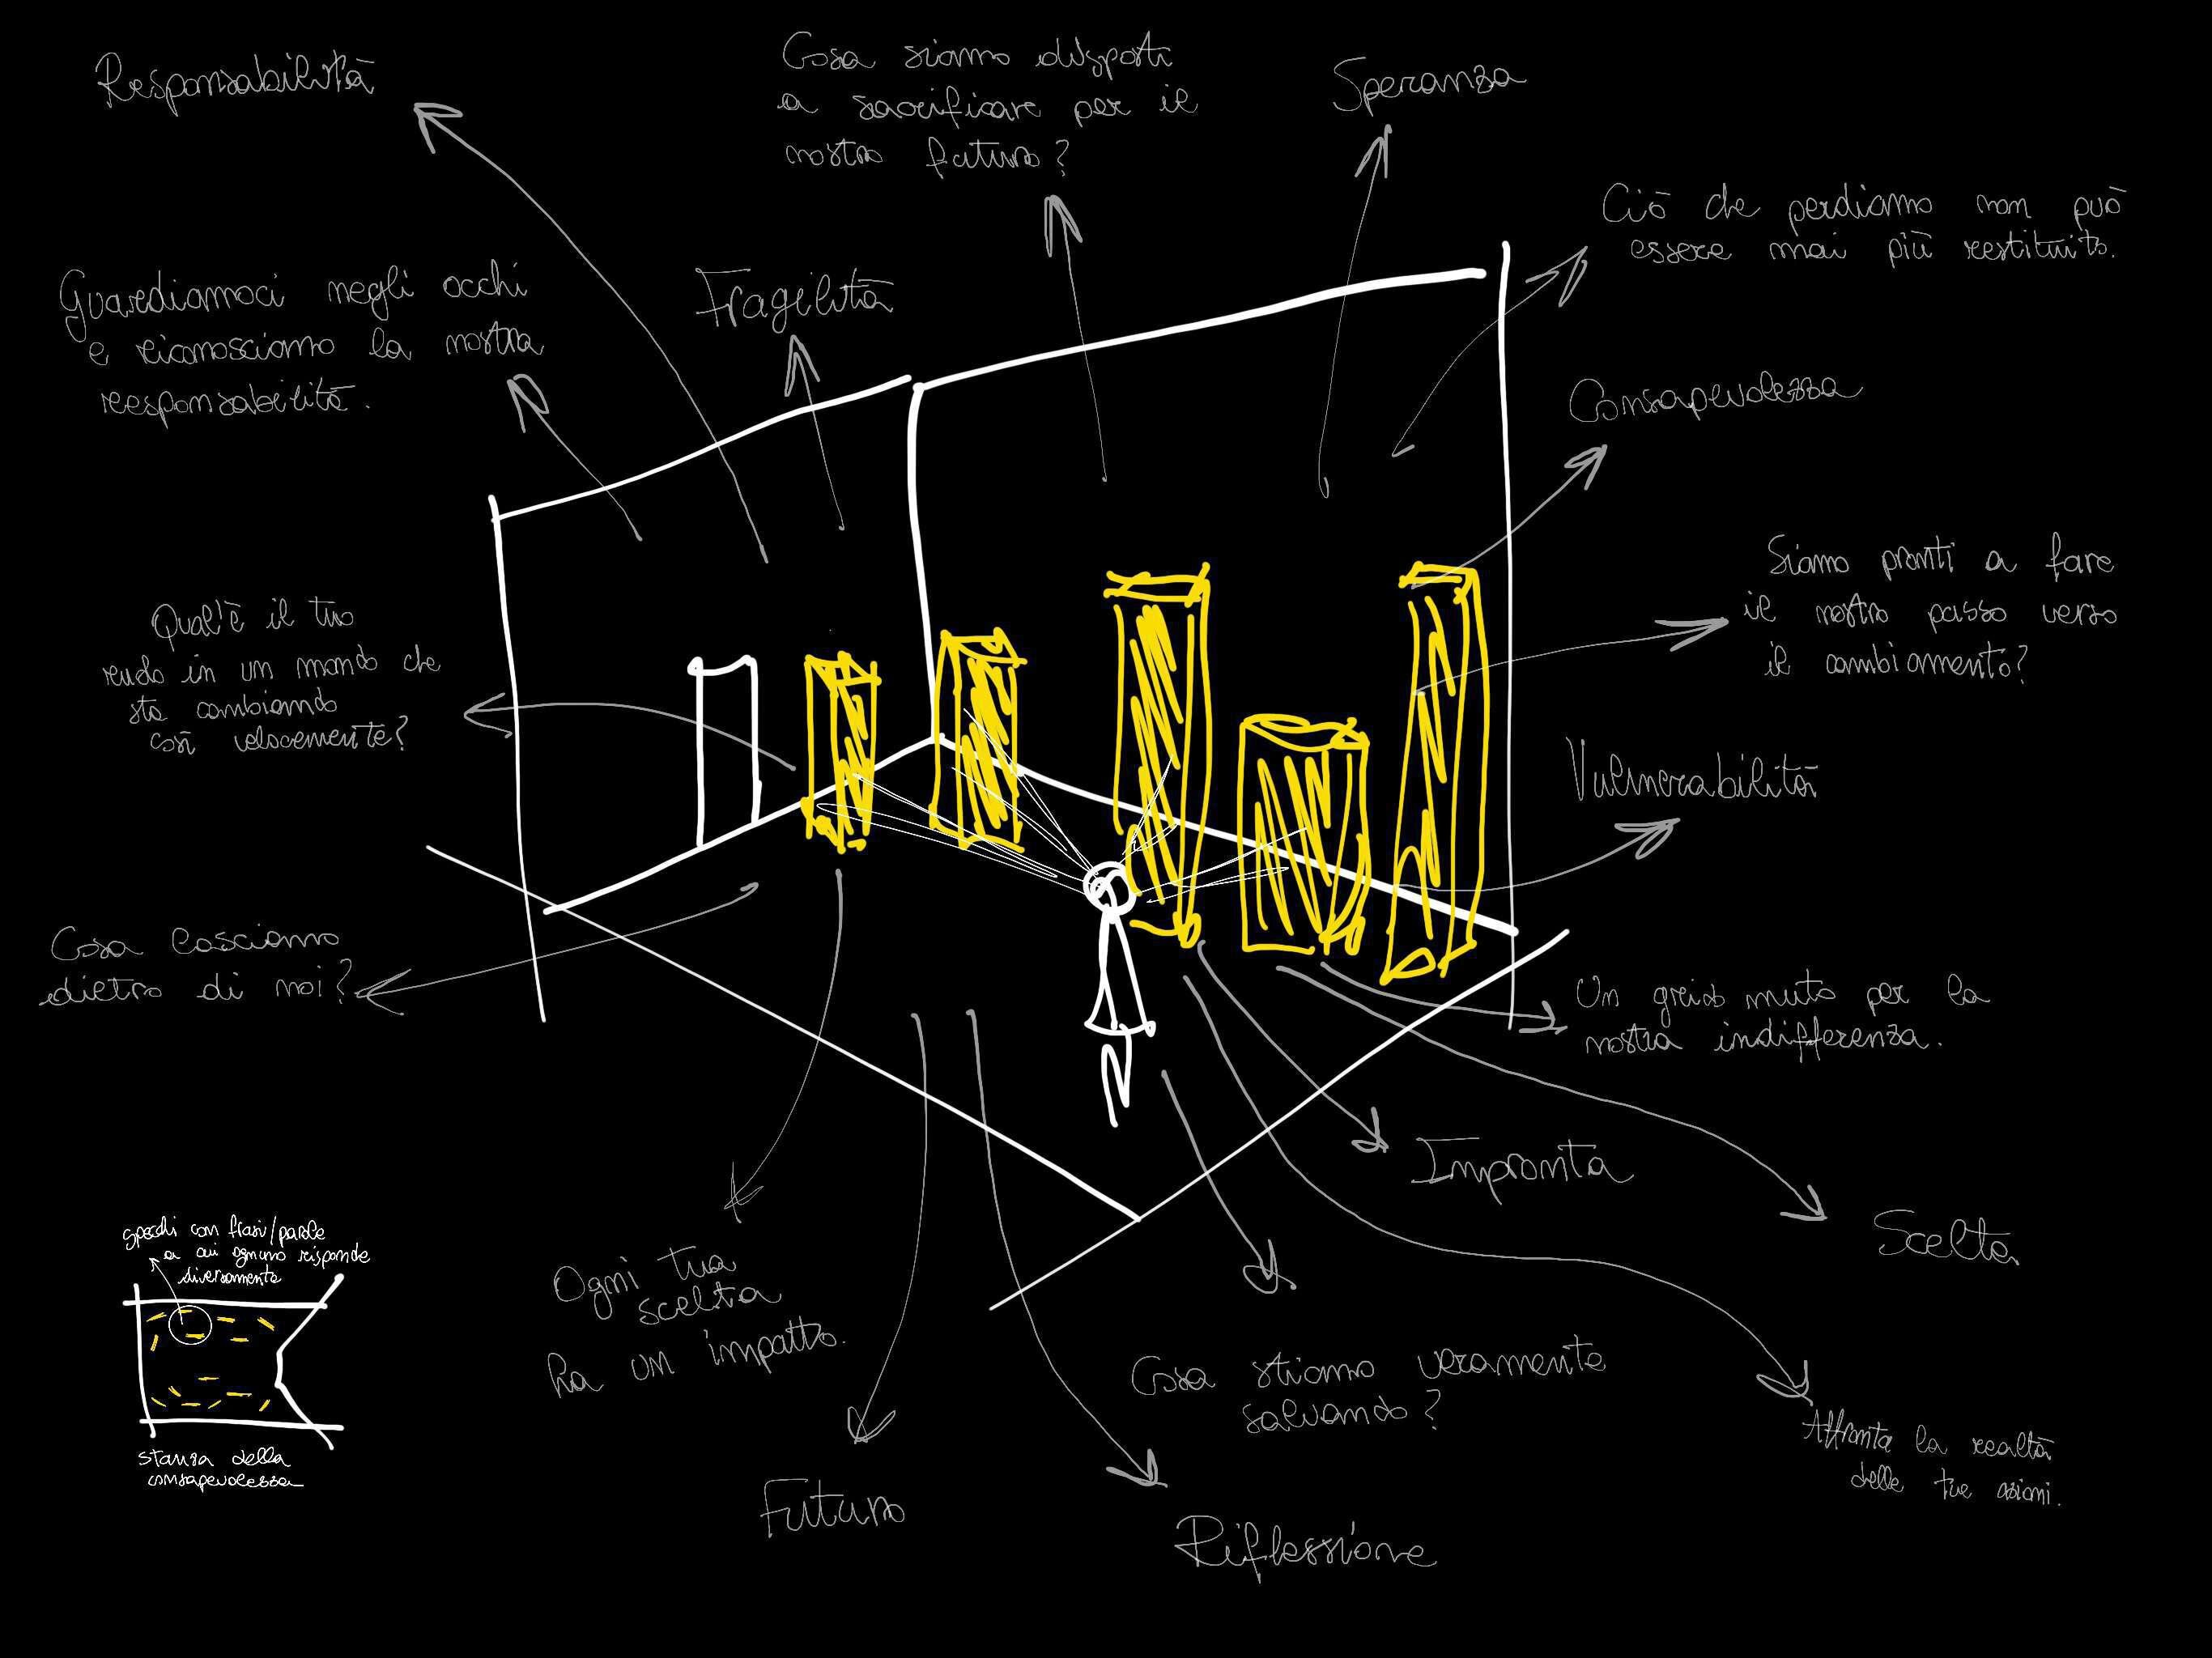 Responsabilità
Cosa siamo disposti
a sacrificare per il
nostro futuro?
Speranza
Ciò che perdiamo non può
essere mai più restituito.
Guardiamoci negli occhi
e riconosciamo la nostra
responsabilità.
Fragilità
Consapevolezza
Siamo pronti a fare
il nostro passo verso
il cambiamento?
Qual'è il tuo
ruolo in un mondo che
sta cambiando
così velocemente?
Vulnerabilità
Cosa lasciamo
dietro di noi?
Un grido muto per la
nostra indifferenza.
Impronta
Scelta
Ogni tua
scelta
ha un impatto.
Cosa stiamo veramente
salvando?
Affronta la realtà
delle tue azioni.
Futuro
Riflessione
specchi con frasi/parole
a cui ognuno risponde
diversamente
stanza della
consapevolezza